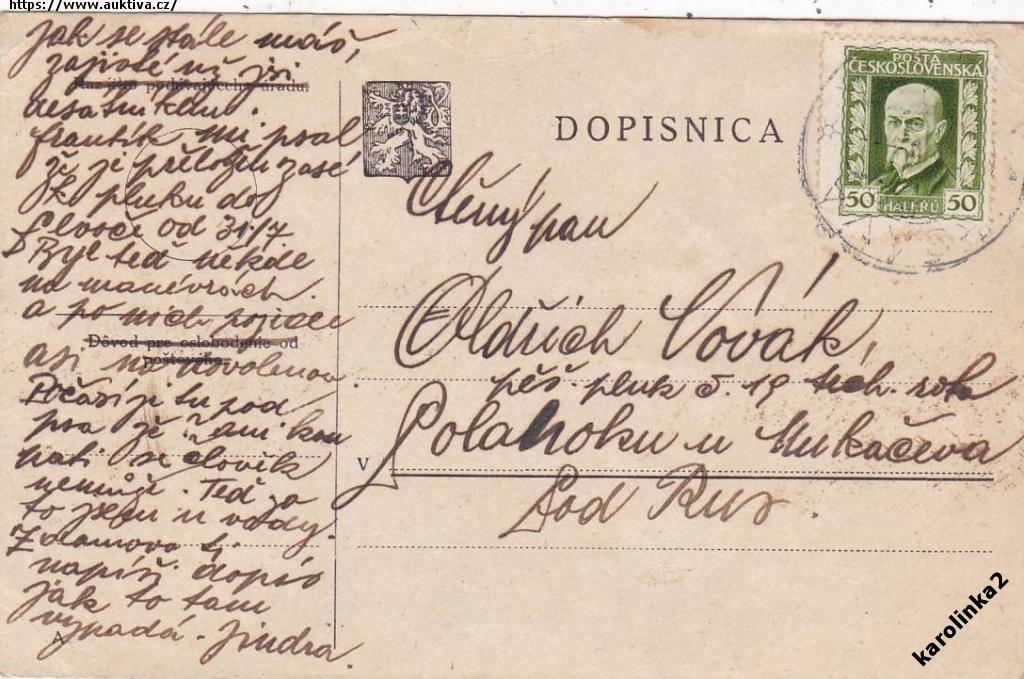 https://www.auktiva.cz/
Jak se stále máš,
zajisté už jsi
Razítko podávajícího úradu.
desátníkem.
František mi psal
že je přeložen zase
k pluku do
od 31/7
Byl teď někde
na manévrách.
a po nich pojede
Dôvod pre oslobodenie od
poštovného.
asi na dovolenou.
Počásí je tu pod
psa že ani kou
pati se člověk
nemůže. Teď za
to jsem u vody.
Z domova ti
napíši dopis
jak to tam
vypadá. Jindra.
DOPISNICA
POŠTA
ČESKOSLOVENSKÁ
50 HALÉŘŮ 50
Ctěný pan
Oldřich Novák,
pěš. pluk č. 19 tech. rota
V
u Mukačeva
Pod Rus.
karolinka2